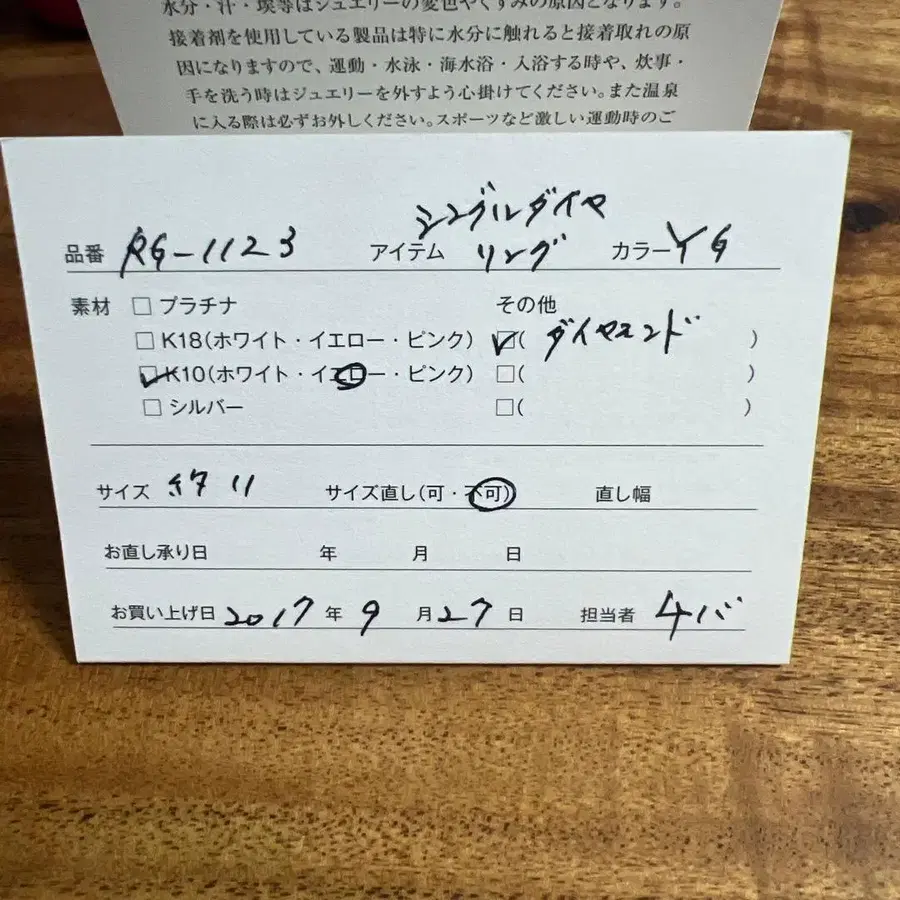 水分・汗・埃等はジュエリーの変色やくすみの原因となります。
接着剤を使用している製品は特に水分に触れると接着取れの原
因になりますので、運動・水泳・海水浴・入浴する時や、炊事・
手を洗う時はジュエリーを外すよう心掛けてください。また温泉
に入る際は必ずお外しください。スポーツなど激しい運動時のご
品番 RG-1123 アイテム シングルダイヤ リング カラー YG
素材 □ プラチナ その他
□ K18(ホワイト・イエロー・ピンク) ☑( ダイヤモンド )
☑ K10(ホワイト・イエロー・ピンク) □( )
□ シルバー □( )
サイズ 約 11 サイズ直し(可・不可) 直し幅
お直し承り日 年 月 日
お買い上げ日 2017 年 9 月 27 日 担当者